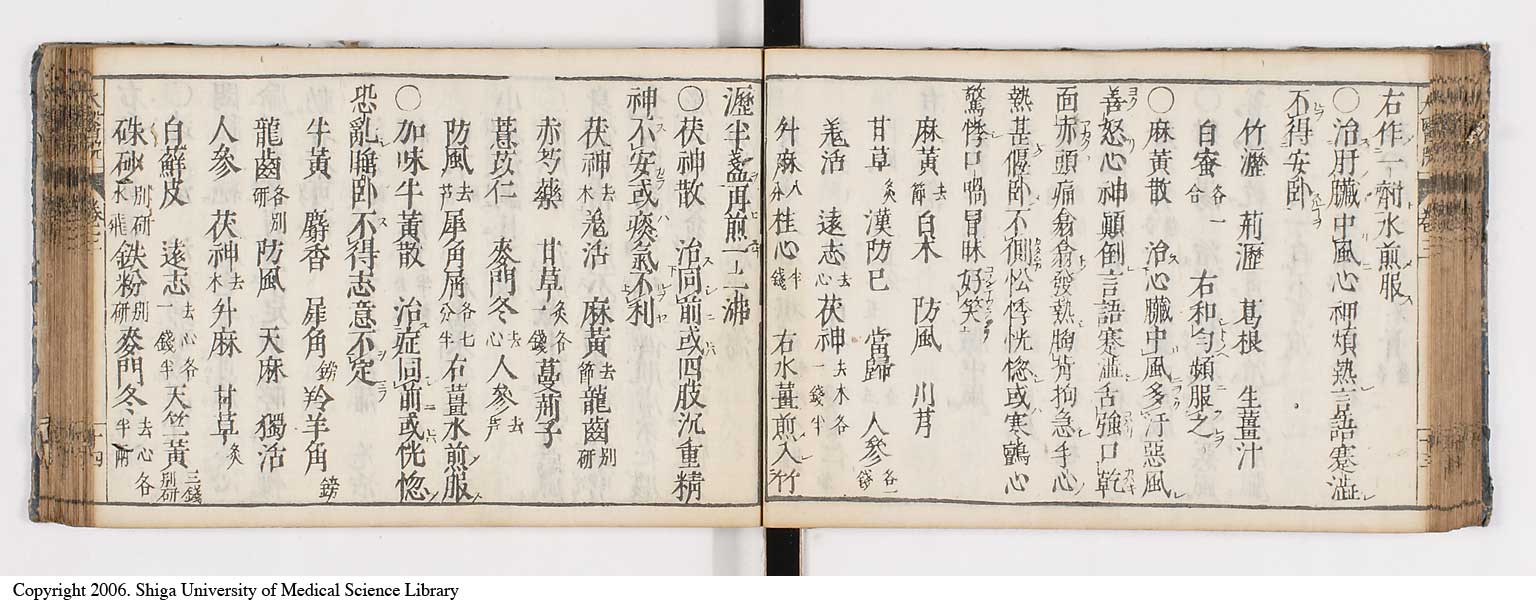 右作一劑水煎服
〇治肝臟中風心神煩熱言語蹇澁
不得安卧
竹瀝 荊瀝 葛根 生薑汁
白蜜各一合 右和勻頻服之
〇麻黃散 治心臟中風多汗惡風
善怒心神顛倒言語蹇澁舌強口乾
面赤頭痛翕翕發熱胸背拘急手心
熱甚偃卧不側忪悸恍惚或寒鬱心
驚悸口喎冒昧好笑
麻黃去節 白术 防風 川芎
甘草炙 漢防已 當歸 人參各一錢
羗活 遠志去心 茯神去木各一錢半
升麻八分 桂心半錢 右水薑煎入竹
瀝半盞再煎一二沸
〇茯神散 治同前或四肢沉重精
神不安或痰氣不利
茯神去木 羗活 麻黃去節 龍齒別研
赤芍藥 甘草炙各一錢 蔓荊子
薏苡仁 麥門冬去心 人參去芦
防風去芦 犀角屑各七分半 右薑水煎服
〇加味牛黃散 治症同前或恍惚
恐亂睡卧不得志意不定
牛黃 麝香 犀角鎊 羚羊角鎊
龍齒各別研 防風 天麻 獨活
人參 茯神去木 升麻 甘草炙
白鮮皮 遠志去心各一錢半 天竺黃三錢別研
硃砂別研水飛 鉄粉別研 麥門冬去心各半兩
Copyright 2006. Shiga University of Medical Science Library